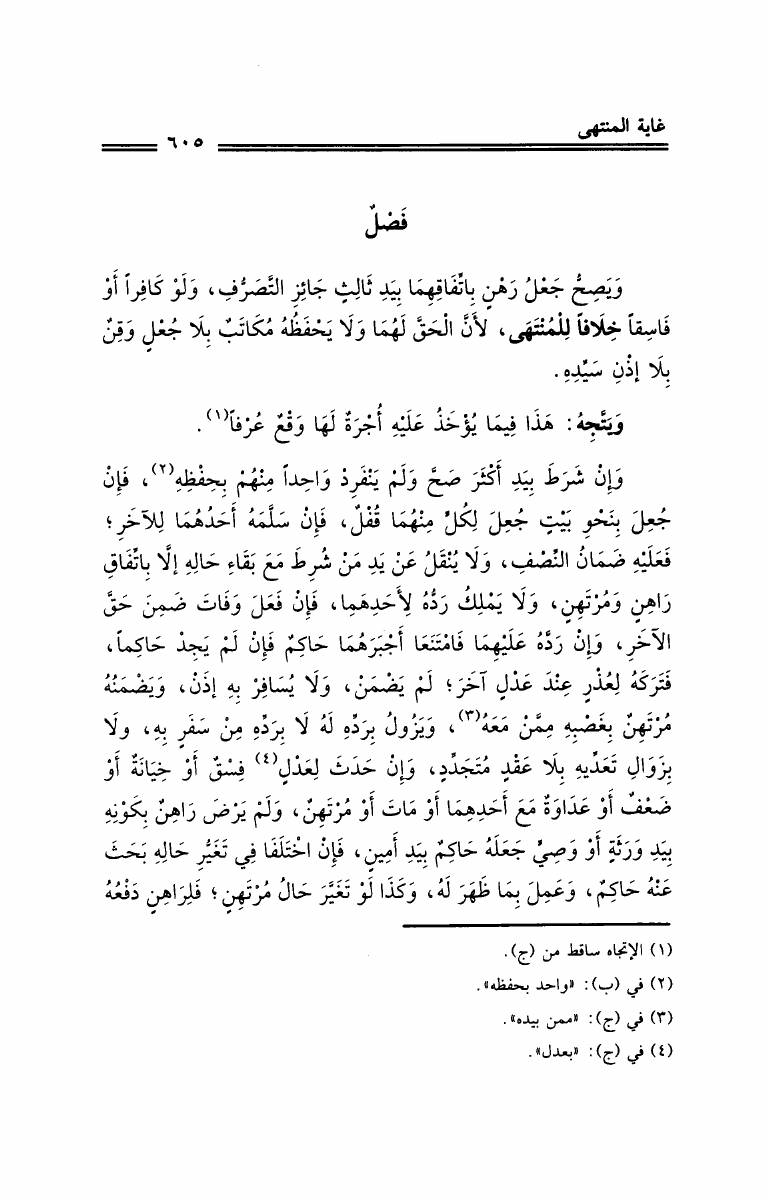 غاية المنتهى
٦٠٥
فَصْلٌ
وَيَصِحُّ جَعْلُ رَهْنٍ بِاتِّفَاقِهِمَا بِيَدِ ثَالِثٍ جَائِزِ التَّصَرُّفِ، وَلَوْ كَافِراً أَوْ
فَاسِقاً خِلَافاً لِلْمُنْتَهَى، لأَنَّ الْحَقَّ لَهُمَا وَلَا يَحْفَظُهُ مُكَاتَبٌ بِلَا جُعْلٍ وَقِنٌّ
بِلَا إذْنِ سَيِّدِهِ.
وَيَتَّجِهُ: هَذَا فِيمَا يُؤْخَذُ عَلَيْهِ أُجْرَةٌ لَهَا وَقْعٌ عُرْفاً(١).
وَإِنْ شَرَطَ بِيَدِ أَكْثَرَ صَحَّ وَلَمْ يَنْفَرِدْ وَاحِداً مِنْهُمْ بِحِفْظِهِ(٢)، فَإِنْ
جُعِلَ بِنَحْوِ بَيْتٍ جُعِلَ لِكُلٍّ مِنْهُمَا قُفْلٌ، فَإِنْ سَلَّمَهُ أَحَدُهُمَا لِلآخَرِ؛
فَعَلَيْهِ ضَمَانُ النِّصْفِ، وَلَا يُنْقَلُ عَنْ يَدِ مَنْ شُرِطَ مَعَ بَقَاءِ حَالِهِ إلَّا بِاتِّفَاقِ
رَاهِنٍ وَمُرْتَهِنٍ، وَلَا يَمْلِكُ رَدُّهُ لِأَحَدِهَمِا، فَإِنْ فَعَلَ وَفَاتَ ضَمِنَ حَقَّ
الآخَرِ، وَإِنْ رَدَّهُ عَلَيْهِمَا فَامْتَنَعَا أَجْبَرَهُمَا حَاكِمٌ فَإِنْ لَمْ يَجِدْ حَاكِماً،
فَتَرَكَهُ لِعُذْرٍ عِنْدَ عَدْلٍ آخَرَ؛ لَمْ يَضْمَنْ، وَلَا يُسَافِرْ بِهِ إذَنْ، وَيَضْمَنُهُ
مُرْتَهِنٌ بِغَصْبِهِ مِمَّنْ مَعَهُ(٣)، وَيَزُولُ بِرَدِّهِ لَهُ لَا بِرَدِّهِ مِنْ سَفَرٍ بِهِ، ولَا
بِزَوَالِ تَعَدِّيهِ بِلَا عَقْدٍ مُتَجَدِّدٍ، وَإِنْ حَدَثَ لِعَدْلٍ(٤) فِسْقٌ أَوْ خِيَانَةٌ أَوْ
ضَعْفٌ أَوْ عَدَاوَةٌ مَعَ أَحَدِهِمَا أَوْ مَاتَ أَوْ مُرْتَهِنٌ، وَلَمْ يَرْضَ رَاهِنٌ بِكَوْنِهِ
بِيَدِ وَرَثَةٍ أَوْ وَصِيٍّ جَعَلَهُ حَاكِمٌ بِيَدِ أَمِينٍ، فَإِنْ اخْتَلَفَا فِي تَغَيُّرِ حَالِهِ بَحَثَ
عَنْهُ حَاكِمٌ، وَعَمِلَ بِمَا ظَهَرَ لَهُ، وَكَذَا لَوْ تَغَيَّرَ حَالُ مُرْتَهِنٍ؛ فَلِرَاهِنٍ دَفْعُهُ
(١) الإتجاه ساقط من (ج).
(٢) في (ب): «واحد بحفظه».
(٣) في (ج): «ممن بيده».
(٤) في (ج): «بعدل».